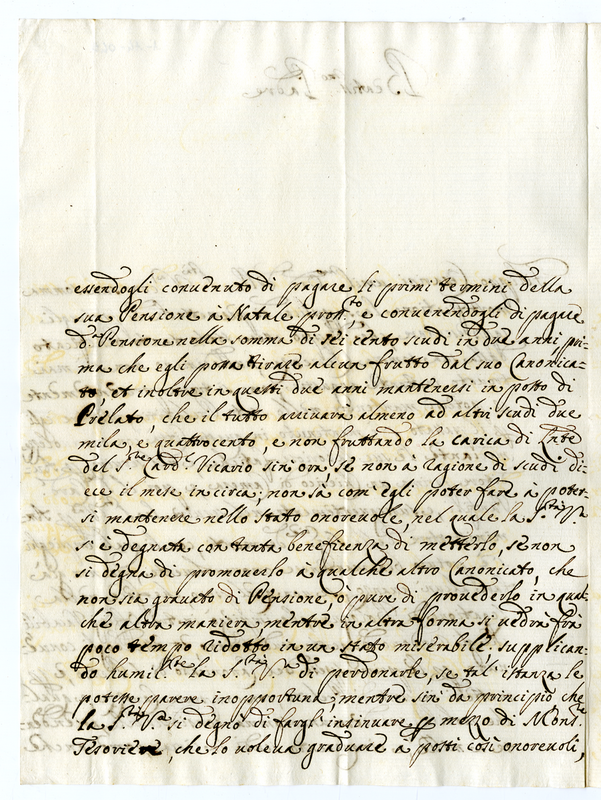 essendogli convenuto di pagare li primi termini della
sua Pensione à Natale pross.to, e convenendogli di pagare
d.a Pensione nella somma di sei cento scudi in due anni pri-
ma che egli possa tirare alcun frutto dal suo Canonica-
to, et inoltre in questi due anni mantenersi in posto di
Prelato, che il tutto arrivarà almeno ad altri scudi due
mila, e quattrocento, e non fruttando la carica di
del S.re Card.l Vicario sin ora, se non à ragione di scudi di-
ece il mese in circa; non sà com'egli poter fare à poter-
si mantenere nello stato onorevole, nel quale la S.tà V.a
si è degnata con tanta beneficenza di metterlo, se non
si degna di promoverlo à qualche altro Canonicato, che
non sia gravato di Pensione, ò pure di provederlo in qual-
che altra maniera mentre in altra forma si vedrà frà
poco tempo ridotto in un stato miserabile, supplican-
do humil.te la S.tà V.a di perdonarle, se tal' istanza le
potesse parere inopportuna, mentre sin da principio che
la S.tà V.a si degnò di fargli insinuare per mezzo di Mons.re
Tesoriere, che lo voleva graduare à posti così onorevoli,